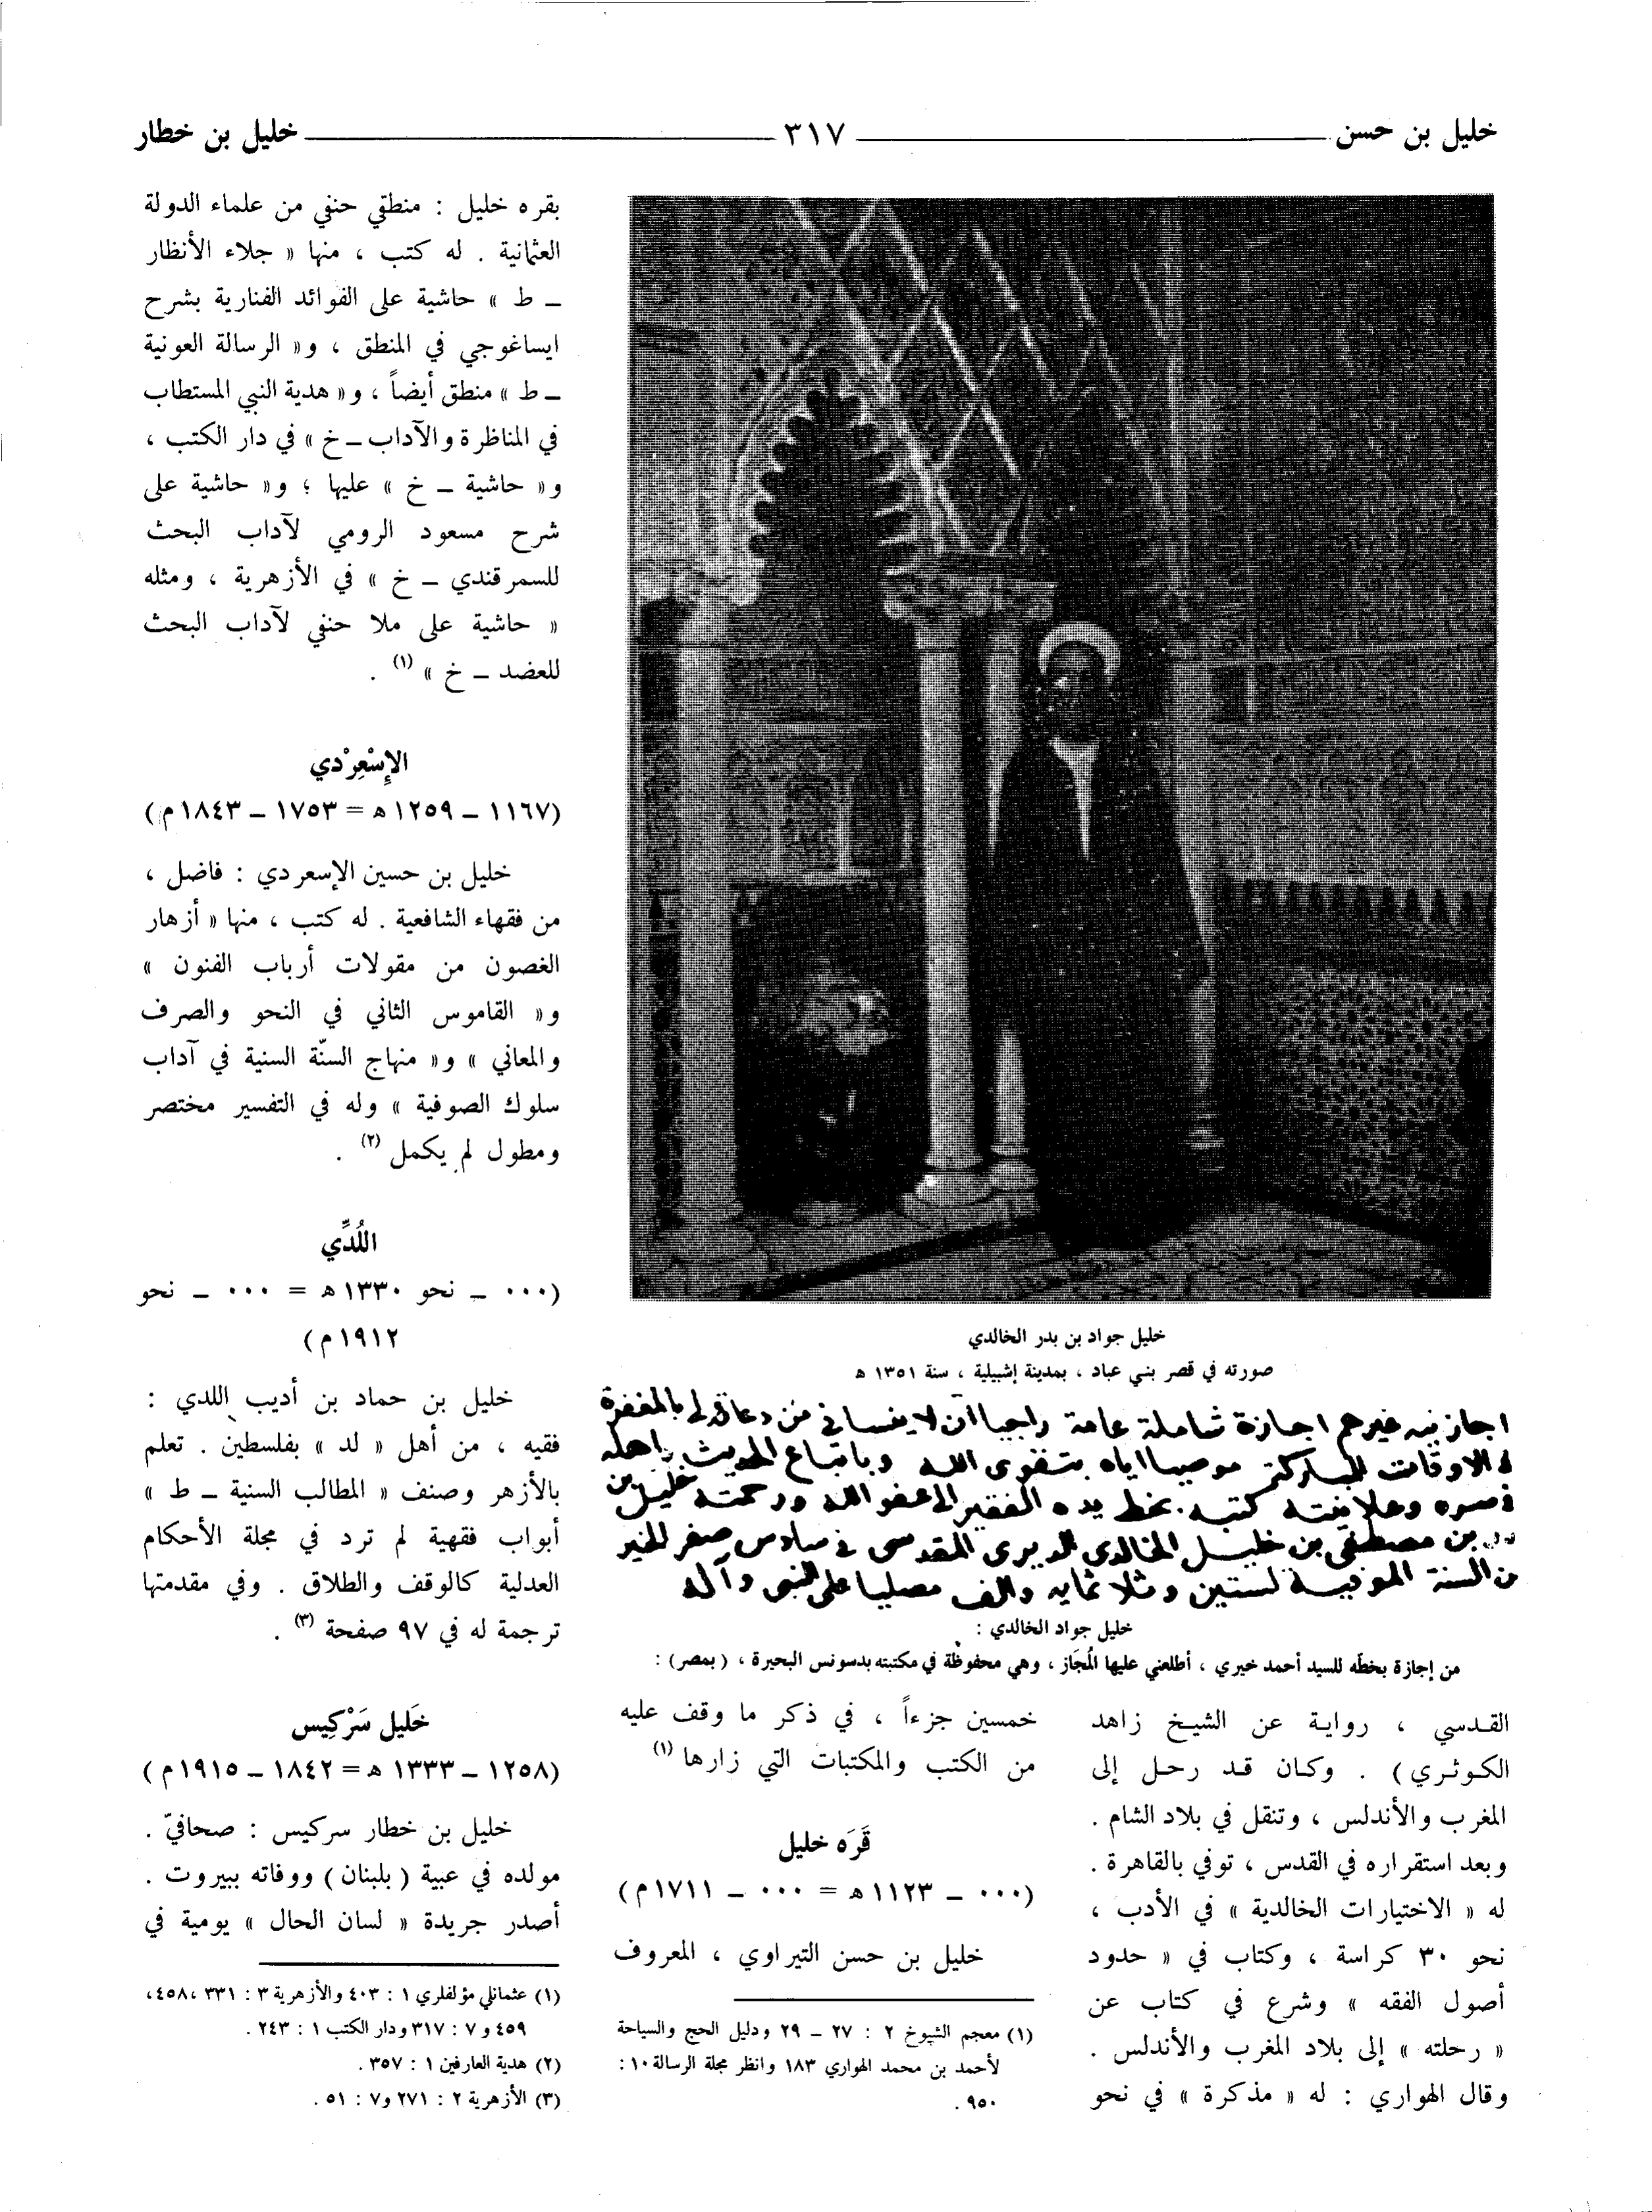 خليل بن حسن ٣١٧ خليل بن خطار
خليل جواد بن بدر الخالدي
صورته في قصر بني عباد ، بمدينة إشبيلية ، سنة ١٣٥١ ه
اجازنيه غيرهم اجازة شاملة عامة راجيا ان لا ينساني من دعائه لي بالمغفرة
في الاوقات المباركة موصيا اياه بتقوى الله وباتباع الحديث واهله
في سره وعلانيته كتبه بخط يده الفقير الى عفو الله ورحمته خليل بن
بدر بن مصطفى بن خليل الخالدي الديري المقدسي في سادس صفر الخير
من السنة الموفية لستين وثلاثماية والف مصليا على النبي وآله
خليل جواد الخالدي :
من إجازة بخطه للسيد أحمد خيري ، أطلعني عليها المُجَاز ، وهي محفوظة في مكتبته بدسونس البحيرة ، ( بمصر) :
القدسي ، رواية عن الشيخ زاهد
الكوثري) . وكان قد رحل إلى
المغرب والأندلس ، وتنقل في بلاد الشام .
وبعد استقراره في القدس ، توفي بالقاهرة .
له « الاختيارات الخالدية » في الأدب ،
نحو ٣٠ كراسة ، وكتاب في « حدود
أصول الفقه » وشرع في كتاب عن
« رحلته » إلى بلاد المغرب والأندلس .
وقال الهواري : له « مذكرة » في نحو
خمسين جزءاً ، في ذكر ما وقف عليه
من الكتب والمكتبات التي زارها (١)
قَرَه خليل
(٠٠٠ – ١١٢٣ ه = ٠٠٠ – ١٧١١ م)
خليل بن حسن التيراوي ، المعروف
(١) معجم الشيوخ ٢ : ٢٧ – ٢٩ ودليل الحج والسياحة
لأحمد بن محمد الهواري ١٨٣ وانظر مجلة الرسالة ١٠ :
٩٥٠ .
بقره خليل : منطقي حنفي من علماء الدولة
العثمانية . له كتب ، منها « جلاء الأنظار
– ط » حاشية على الفوائد الفنارية بشرح
ايساغوجي في المنطق ، و« الرسالة العونية
– ط » منطق أيضاً ، و« هدية النبي المستطاب
في المناظرة والآداب – خ » في دار الكتب ،
و« حاشية – خ » عليها ؛ و« حاشية على
شرح مسعود الرومي لآداب البحث
للسمرقندي – خ » في الأزهرية ، ومثله
« حاشية على ملا حنفي لآداب البحث
للعضد – خ » (١) .
الإِسْعِرْدي
(١١٦٧ – ١٢٥٩ ه = ١٧٥٣ – ١٨٤٣ م)
خليل بن حسين الإسعردي : فاضل ،
من فقهاء الشافعية . له كتب ، منها « أزهار
الغصون من مقولات أرباب الفنون »
و« القاموس الثاني في النحو والصرف
والمعاني » و« منهاج السنّة السنية في آداب
سلوك الصوفية » وله في التفسير مختصر
ومطول لم يكمل (٢) .
اللُدِّي
(٠٠٠ – نحو ١٣٣٠ ه = ٠٠٠ – نحو
١٩١٢ م)
خليل بن حماد بن أديب اللدي :
فقيه ، من أهل « لد » بفلسطين . تعلم
بالأزهر وصنف « المطالب السنية – ط »
أبواب فقهية لم ترد في مجلة الأحكام
العدلية كالوقف والطلاق . وفي مقدمتها
ترجمة له في ٩٧ صفحة (٣) .
خَليل سَرْكِيس
(١٢٥٨ – ١٣٣٣ ه = ١٨٤٢ – ١٩١٥ م)
خليل بن خطار سركيس : صحافيّ .
مولده في عبية ( بلبنان ) ووفاته ببيروت .
أصدر جريدة « لسان الحال » يومية في
(١) عثمانلي مؤلفلري ١ : ٤٠٣ والأزهرية ٣ : ٣٣١ ، ٤٥٨ ،
٤٥٩ و ٧ : ٣١٧ ودار الكتب ١ : ٢٤٣ .
(٢) هدية العارفين ١ : ٣٥٧ .
(٣) الأزهرية ٢ : ٢٧١ و ٧ : ٥١ .